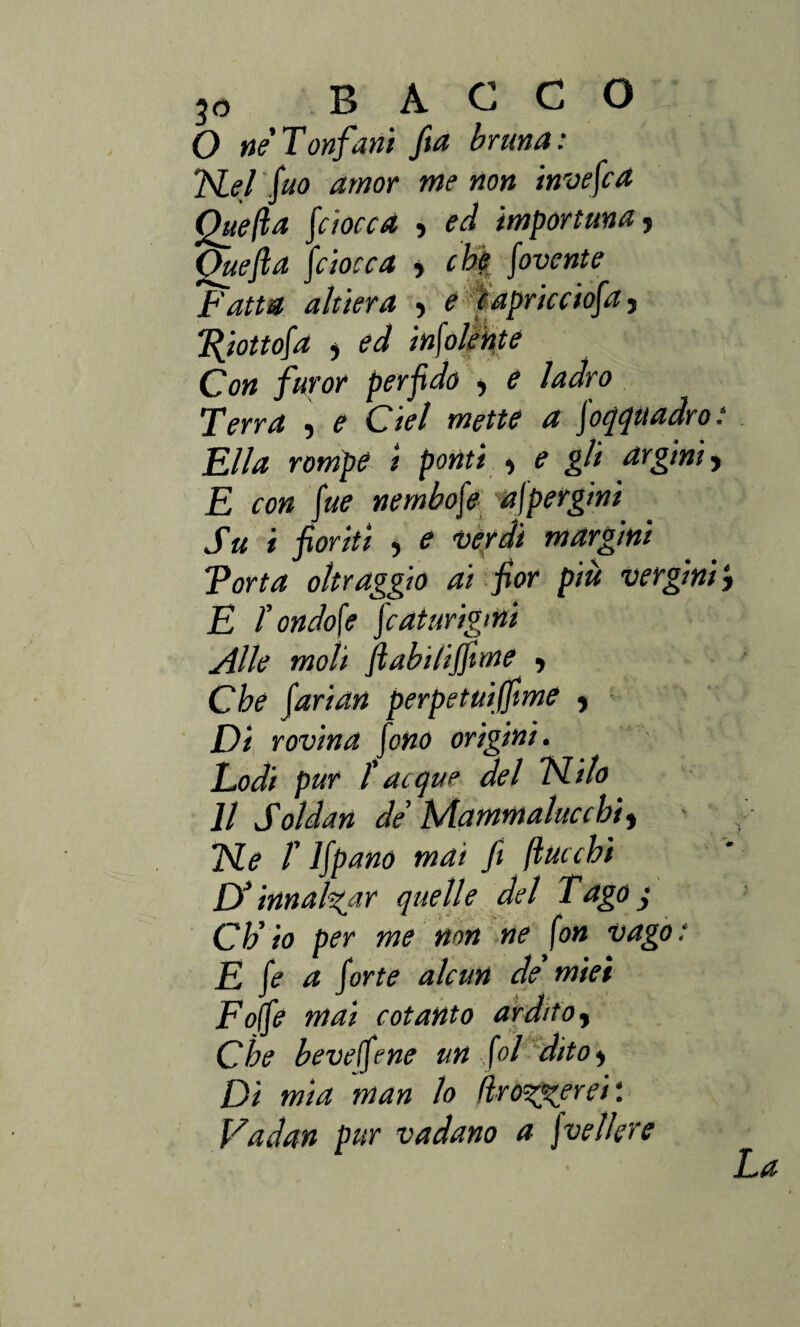 30 BACCO
O ne' Tonfani ſia bruna:
Nel ſuo amor me non inveſca
Queſta ſciocca, ed importuna,
Queſta ſciocca, che ſovente
Fatta altiera, e capriccioſa,
Riottoſa, ed inſolente
Con furor perfido, e ladro
Terra, e Ciel mette a ſoqquadro:
Ella rompe i ponti, e gli argini,
E con ſue nemboſe aſpergini
Su i fioriti, e verdi margini
Porta oltraggio ai fior più vergini;
E l' ondoſe ſcaturigini
Alle moli ſtabiliſſime,
Che ſarian perpetuiſſime,
Di rovina ſono origini.
Lodi pur l' acque del Nilo
Il Soldan de' Mammalucchi,
Ne l' Iſpano mai ſi ſtucchi
D' innalzar quelle del Tago;
Ch' io per me non ne ſon vago:
E ſe a ſorte alcun de' miei
Foſſe mai cotanto ardito,
Che beveſſene un ſol dito,
Di mia man lo ſtrozzerei:
Vadan pur vadano a ſvellere
La